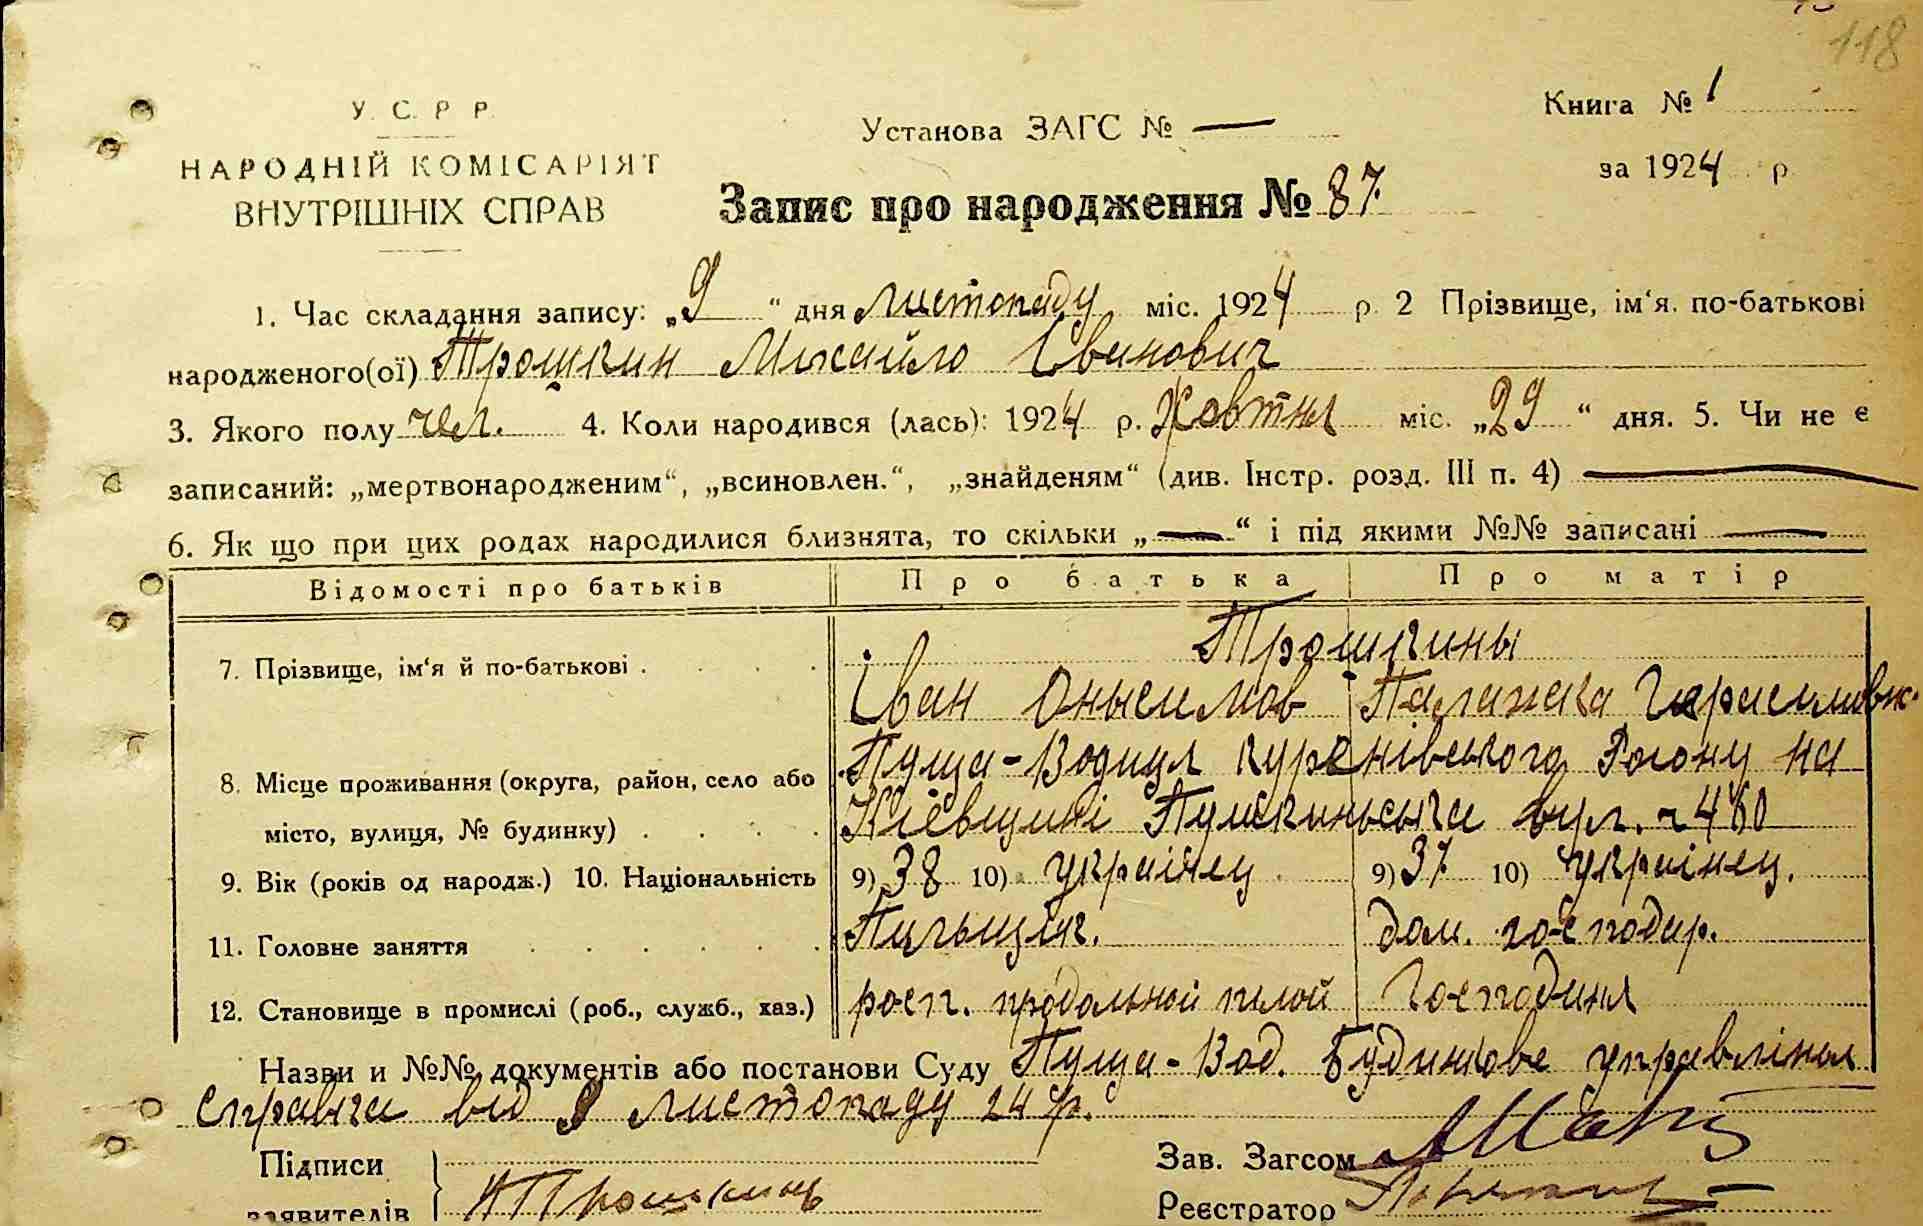 118
У. С. Р. Р.
НАРОДНІЙ КОМІСАРІЯТ
ВНУТРІШНІХ СПРАВ
Установа ЗАГС № —
Книга № 1
за 1924 р.
Запис про народження № 87.
1. Час складання запису: „9“ дня листопаду міс. 1924 р. 2 Прізвище, ім‘я, по-батькові
народженого(ої) Трошкин Михайло Іванович
3. Якого полу чел. 4. Коли народився (лась): 1924 р. Жовтня міс. „29“ дня. 5. Чи не є
записаний: „мертвонародженим“, „всиновлен.“, „знайденям“ (див. Інстр. розд. III п. 4) —
6. Як що при цих родах народилися близнята, то скільки „—“ і під якими №№ записані —
Відомості про батьків Про батька Про матір
7. Прізвище, ім‘я й по-батькові . Трошкины
Іван Онысимов Палажка Герасимовн.
8. Місце проживання (округа, район, село або Пуща-Водиця Куренівського Району на
місто, вулиця, № будинку) . Київщині Пушкиньська вул. 460
9. Вік (років од народж.) 10. Національність 9) 38 10) украінец 9) 37 10) украінец.
11. Головне заняття Пильщик. дом. господар.
12. Становище в промислі (роб., служб., хаз.) росп. продольной пилой Господиня
Назви и №№ документів або постанови Суду Пуща-Вод. Будинкове управління
справка від 9 листопаду 24 р.
Підписи
заявителів Трошкинъ
Зав. Загсом
Реєстратор